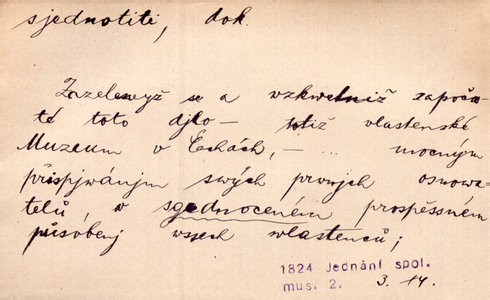 sjednotiti, dok.
Zazelenyž se a wzkwetniž započa-
té toto djlo – totiž vlastenské
Muzeum v Čechách, – ... mocným
přispjwánjm swých prwnjch osnowa-
telů, w sgednoceném prospěssném
působenj wssech wlastenců;
1824 Jednání spol.
mus. 2. 3. 14.